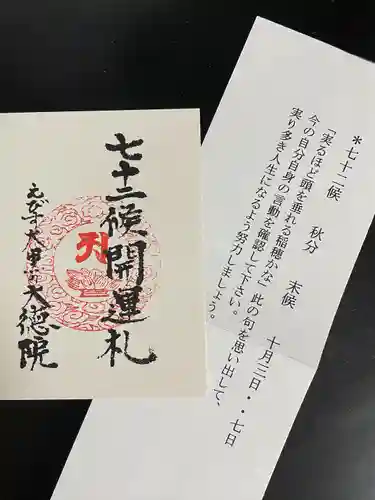 *七十二候　秋分　末候　十月三日・・七日
「実るほど頭を垂れる稲穂かな」此の句を思い出して、
今の自分自身の言動を確認して下さい。
実り多き人生になるよう努力しましょう。
七十二候開運札
えびす大黒の大徳院